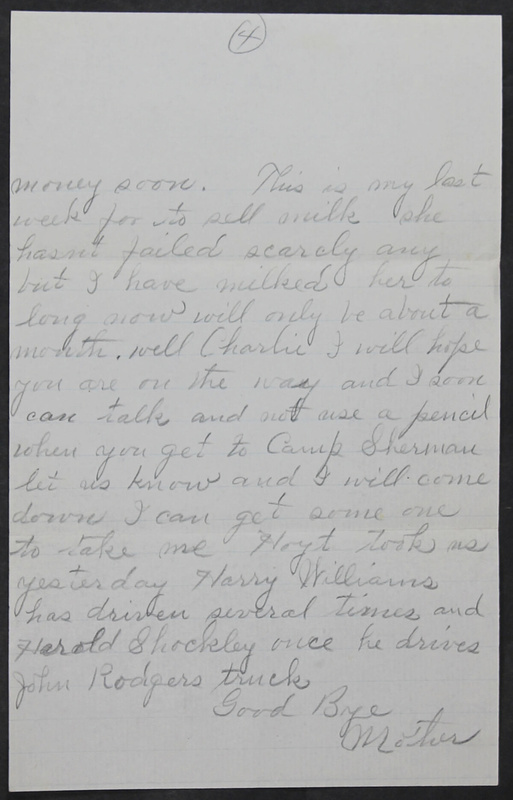 4
money soon. This is my last
week for to sell milk she
hasn't failed scarcly any
but I have milked her to
long now will only be about a
month. well Charlie I will hope
you are on the way and I soon
can talk and not use a pencil
when you get to Camp Sherman
let us know and I will come
down I can get some one
to take me Hoyt took us
yesterday Harry Williams
has driven several times and
Harold Shockley once he drives
John Rodgers truck
Good Bye
Mother